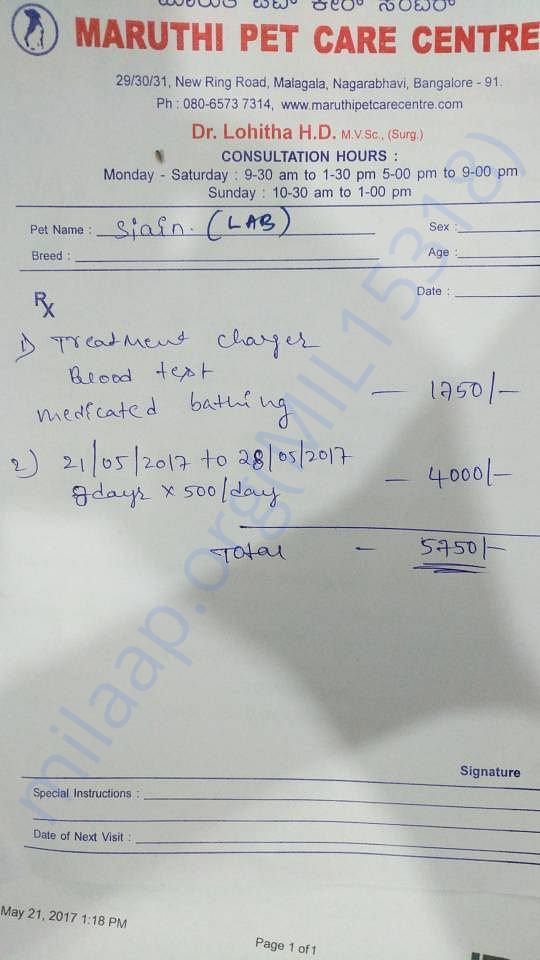 ಮಾರುತಿ ಪೆಟ್ ಕೇರ್ ಸೆಂಟರ್
MARUTHI PET CARE CENTRE
29/30/31, New Ring Road, Malagala, Nagarabhavi, Bangalore - 91.
Ph : 080-6573 7314, www.maruthipetcarecentre.com
Dr. Lohitha H.D. M.V.Sc., (Surg.)
CONSULTATION HOURS :
Monday - Saturday : 9-30 am to 1-30 pm 5-00 pm to 9-00 pm
Sunday : 10-30 am to 1-00 pm
Pet Name : (LAB) Sex :
Breed : Age :
Date :
Rx
1) Treatment charges
Blood test
medicated bathing — 1750/-
2) 21/05/2017 to 28/05/2017
8days x 500/day — 4000/-
Total — 5750/-
milaap.org(MIL15318)
Signature
Special Instructions :
Date of Next Visit :
May 21, 2017 1:18 PM
Page 1 of 1